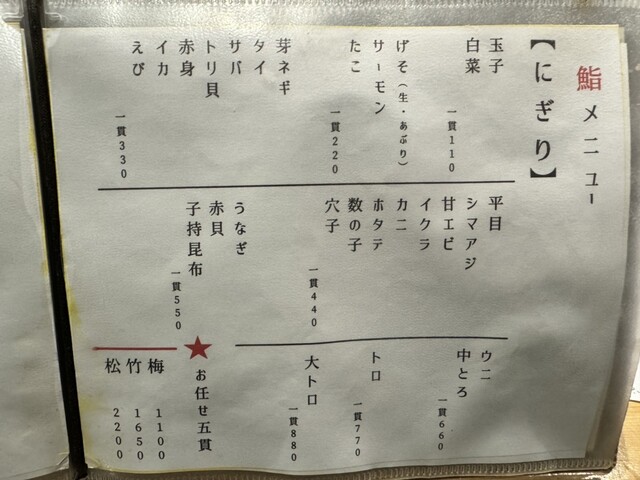 鮨メニュー
【にぎり】
玉子
白菜
一貫110
げそ（生・あぶり）
サーモン
たこ
一貫220
芽ネギ
タイ
サバ
トリ貝
赤身
イカ
えび
一貫330
平目
シマアジ
甘エビ
イクラ
カニ
ホタテ
数の子
穴子
一貫440
うなぎ
赤貝
子持昆布
一貫550
ウニ
中とろ
一貫660
トロ
一貫770
大トロ
一貫880
★お任せ五貫
梅 1100
竹 1650
松 2200